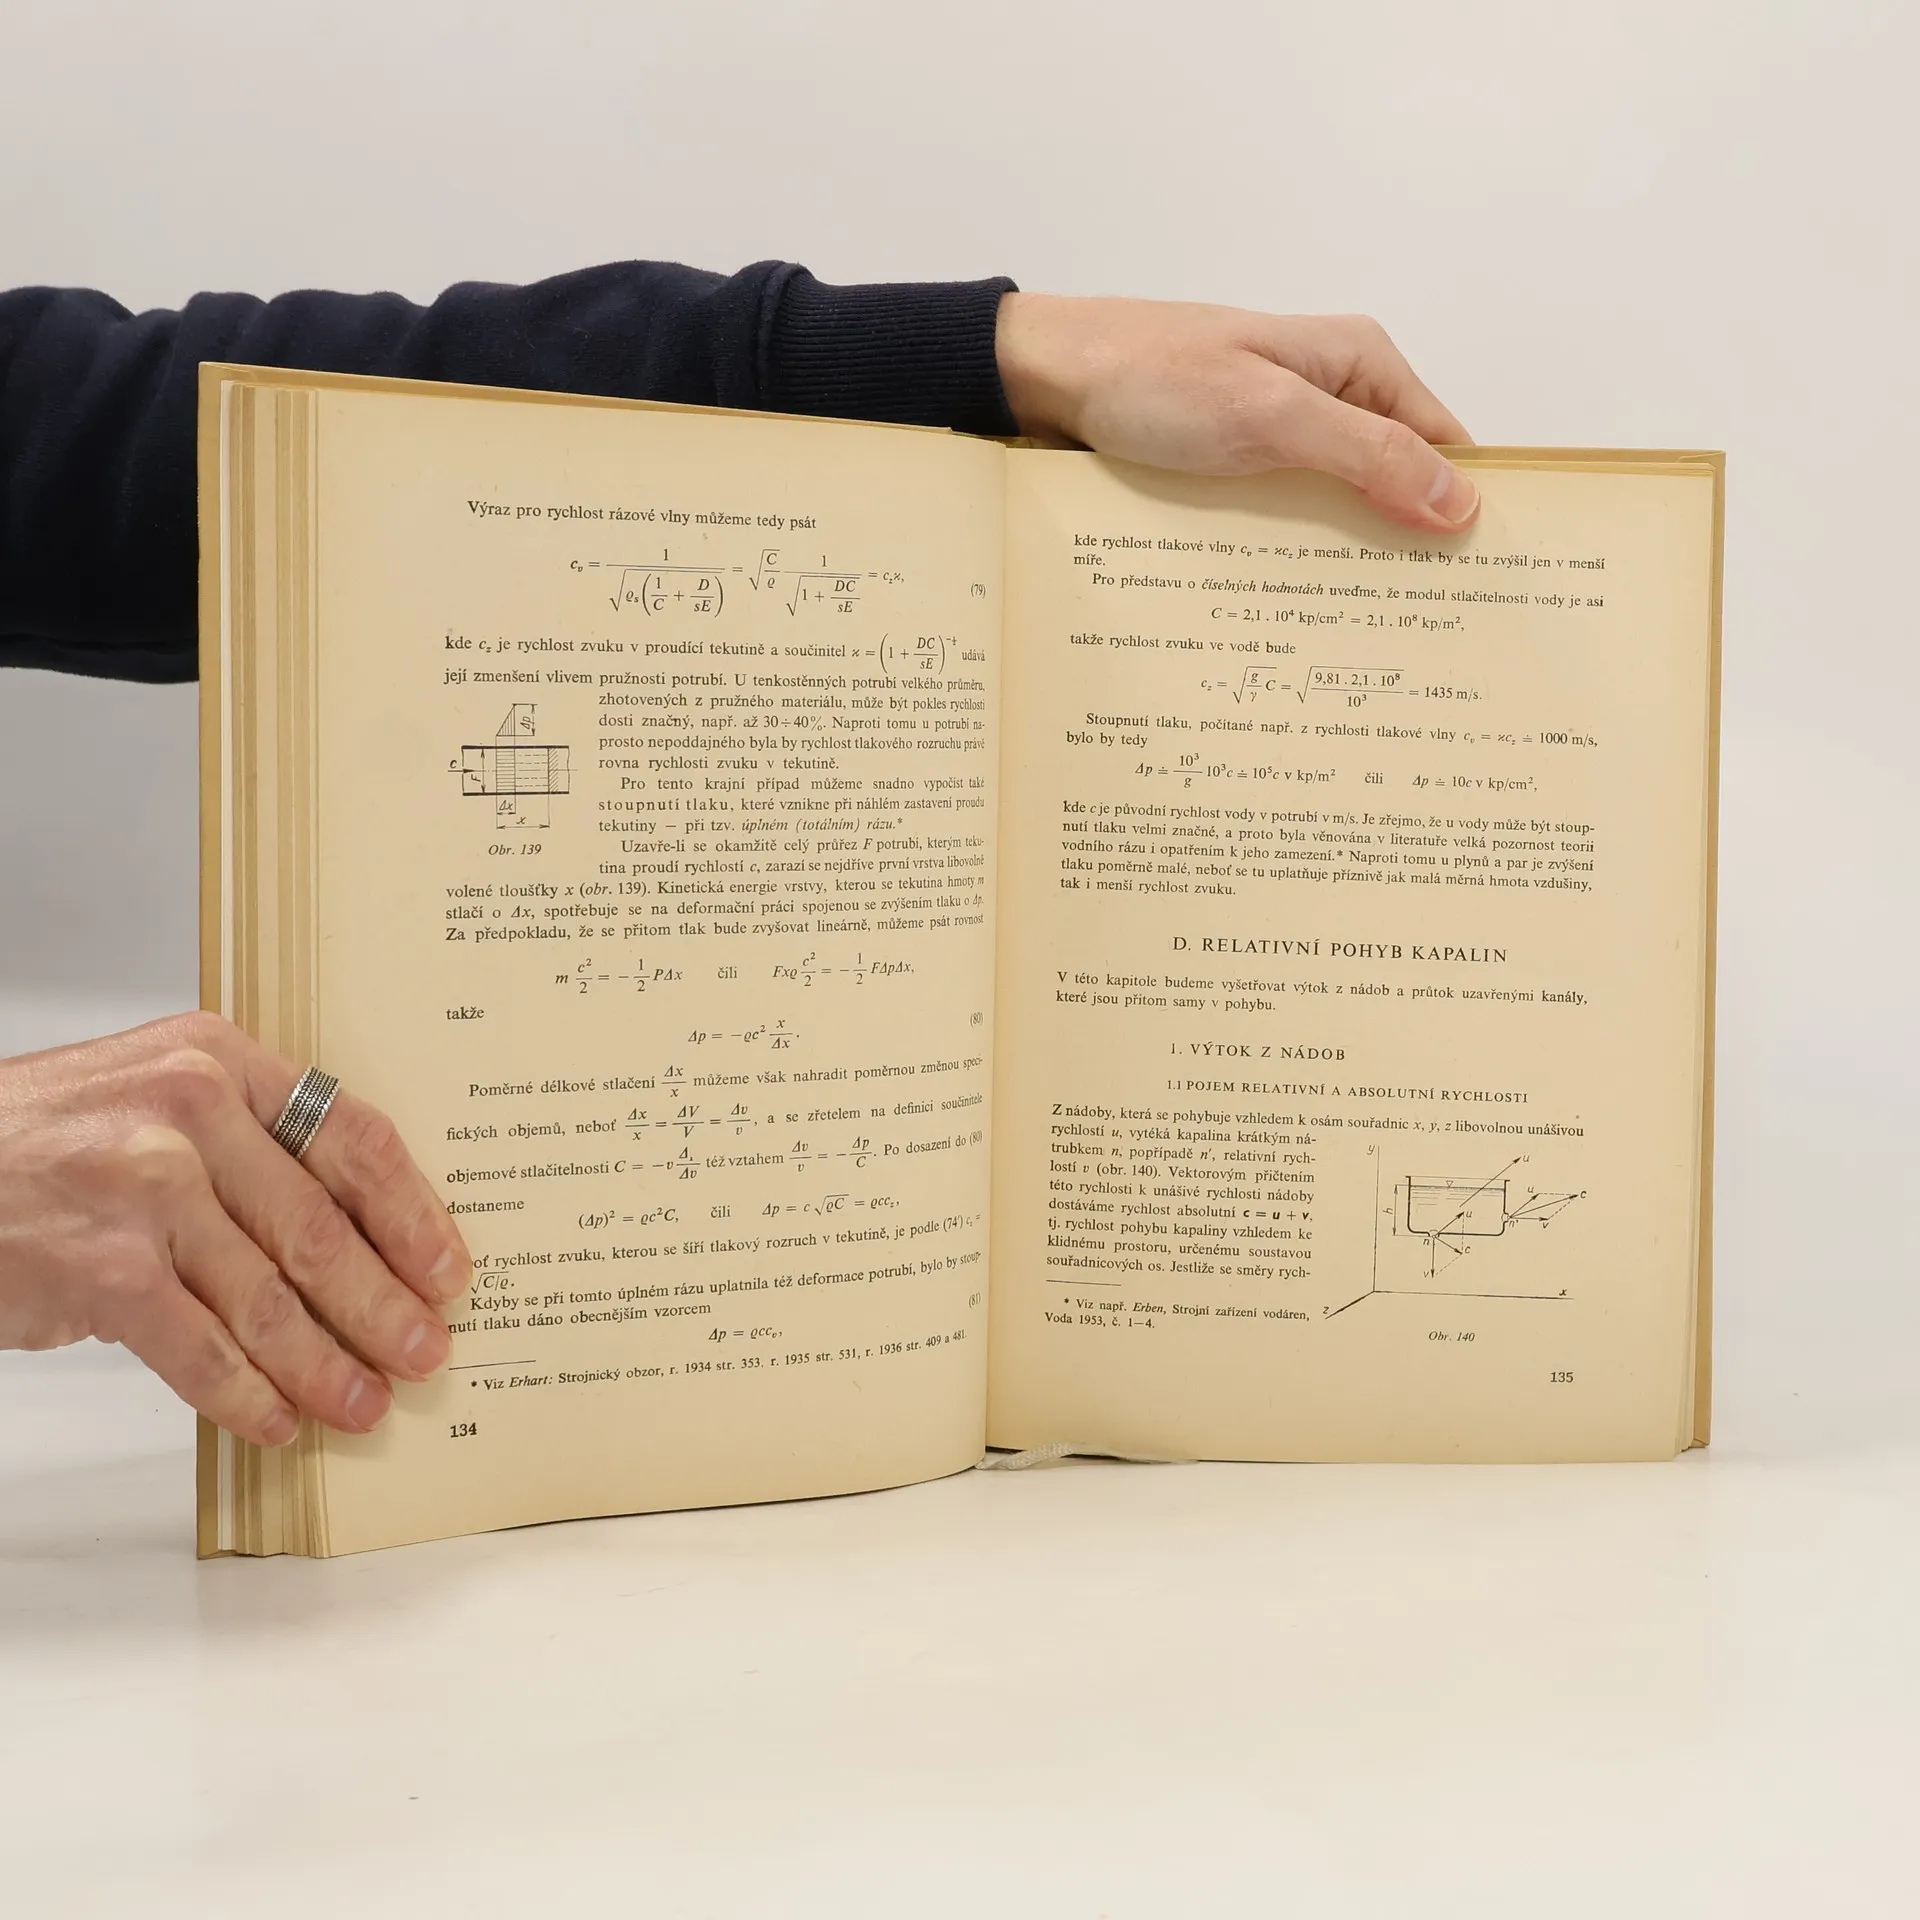 Výraz pro rychlost rázové vlny můžeme tedy psát
c_v = 1 / √(ϱ_s (1/C + D/sE)) = √(C/ϱ) 1 / √(1 + DC/sE) = c_z ϰ, (79)
kde c_z je rychlost zvuku v proudící tekutině a součinitel ϰ = (1 + DC/sE)^(-½) udává
její zmenšení vlivem pružnosti potrubí. U tenkostěnných potrubí velkého průměru,
zhotovených z pružného materiálu, může být pokles rychlosti
dosti značný, např. až 30÷40%. Naproti tomu u potrubí na-
prosto nepoddajného byla by rychlost tlakového rozruchu právě
rovna rychlosti zvuku v tekutině.
Pro tento krajní případ můžeme snadno vypočíst také
stoupnutí tlaku, které vznikne při náhlém zastavení proudu
tekutiny — při tzv. úplném (totálním) rázu.*
Δp
c
F
Δx
x
Obr. 139
Uzavře-li se okamžitě celý průřez F potrubí, kterým teku-
tina proudí rychlostí c, zarazí se nejdříve první vrstva libovolně
volené tloušťky x (obr. 139). Kinetická energie vrstvy, kterou se tekutina hmoty m
stlačí o Δx, spotřebuje se na deformační práci spojenou se zvýšením tlaku o Δp.
Za předpokladu, že se přitom tlak bude zvyšovat lineárně, můžeme psát rovnost
m c²/2 = − 1/2 PΔx čili Fxϱ c²/2 = − 1/2 FΔpΔx,
takže
Δp = −ϱc² x/Δx . (80)
Poměrné délkové stlačení Δx/x můžeme však nahradit poměrnou změnou speci-
fických objemů, neboť Δx/x = ΔV/V = Δv/v, a se zřetelem na definici součinitele
objemové stlačitelnosti C = −v Δ/Δv též vztahem Δv/v = − Δp/C. Po dosazení do (80)
dostaneme
(Δp)² = ϱc²C, čili Δp = c √(ϱC) = ϱcc_z,
oť rychlost zvuku, kterou se šíří tlakový rozruch v tekutině, je podle (74') c_z =
√C/ϱ.
Kdyby se při tomto úplném rázu uplatnila též deformace potrubí, bylo by stoup-
nutí tlaku dáno obecnějším vzorcem
Δp = ϱcc_v, (81)
* Viz Erhart: Strojnický obzor, r. 1934 str. 353, r. 1935 str. 531, r. 1936 str. 409 a 481.
134
kde rychlost tlakové vlny c_v = ϰc_z je menší. Proto i tlak by se tu zvýšil jen v menší
míře.
Pro představu o číselných hodnotách uveďme, že modul stlačitelnosti vody je asi
C = 2,1 . 10⁴ kp/cm² = 2,1 . 10⁸ kp/m²,
takže rychlost zvuku ve vodě bude
c_z = √(g/γ C) = √(9,81 . 2,1 . 10⁸ / 10³) = 1435 m/s.
Stoupnutí tlaku, počítané např. z rychlosti tlakové vlny c_v = ϰc_z ≐ 1000 m/s,
bylo by tedy
Δp ≐ 10³/g 10³c ≐ 10⁵c v kp/m² čili Δp ≐ 10c v kp/cm²,
kde c je původní rychlost vody v potrubí v m/s. Je zřejmo, že u vody může být stoup-
nutí tlaku velmi značné, a proto byla věnována v literatuře velká pozornost teorii
vodního rázu i opatřením k jeho zamezení.* Naproti tomu u plynů a par je zvýšení
tlaku poměrně malé, neboť se tu uplatňuje příznivě jak malá měrná hmota vzdušiny,
tak i menší rychlost zvuku.
D. RELATIVNÍ POHYB KAPALIN
V této kapitole budeme vyšetřovat výtok z nádob a průtok uzavřenými kanály,
které jsou přitom samy v pohybu.
1. VÝTOK Z NÁDOB
1.1 POJEM RELATIVNÍ A ABSOLUTNÍ RYCHLOSTI
Z nádoby, která se pohybuje vzhledem k osám souřadnic x, y, z libovolnou unášivou
rychlostí u, vytéká kapalina krátkým ná-
trubkem n, popřípadě n′, relativní rych-
lostí v (obr. 140). Vektorovým přičtením
této rychlosti k unášivé rychlosti nádoby
dostáváme rychlost absolutní c = u + v,
tj. rychlost pohybu kapaliny vzhledem ke
klidnému prostoru, určenému soustavou
souřadnicových os. Jestliže se směry rych-
* Viz např. Erben, Strojní zařízení vodáren,
Voda 1953, č. 1—4.
y
u
u
c
h
u
n′
v
n
c
v
x
z
Obr. 140
135